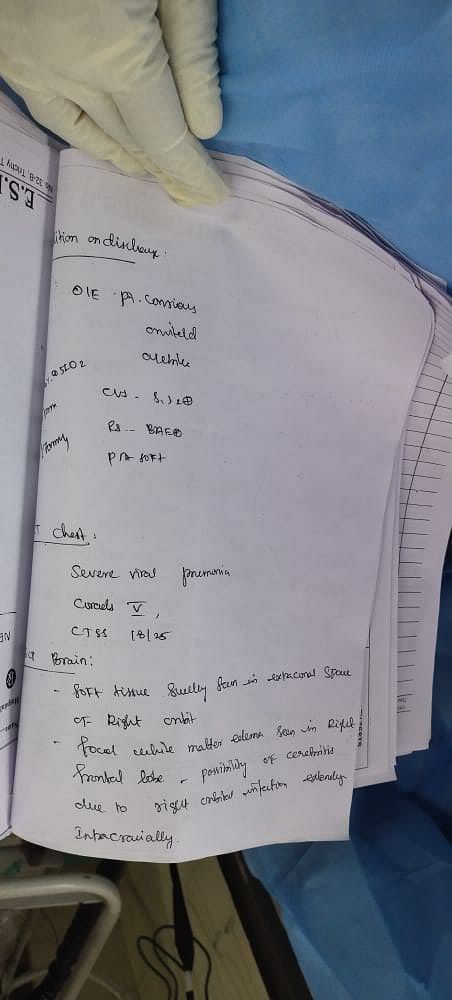 ition on discharge:
O/E pt. Consious
oriented
CVS - S1S2⊕
RS - BAE⊕
P/A SOFT
Chest:
Severe viral pneumonia
Corads V,
CTSS 18/25
Brain:
- Soft tissue Swelly Seen in extraconal Space
of Right orbit
- focal white matter edema Seen in Right
frontal lobe - possibility of cerebritis
due to right orbital infection extendy
Intracranially.
E.S.I
No. 32-B, Trichy T